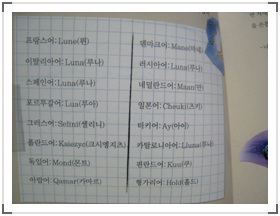 프랑스어: Lune(륀)
이탈리아어: Luna(루나)
스페인어: Luna(루나)
포르투갈어: Lua(루아)
그리스어: Selini(셀리니)
폴란드어: Ksiezyc(크시엥지츠)
독일어: Mond(몬트)
아랍어: Qamar(카마르)
덴마크어: Mane(마네)
러시아어: Luna(루나)
네덜란드어: Maan(만)
일본어: Cheuki(츠키)
터키어: Ay(아이)
카탈로니아어: Lluna(루나)
핀란드어: Kuu(쿠)
헝가리어: Hold(홀드)